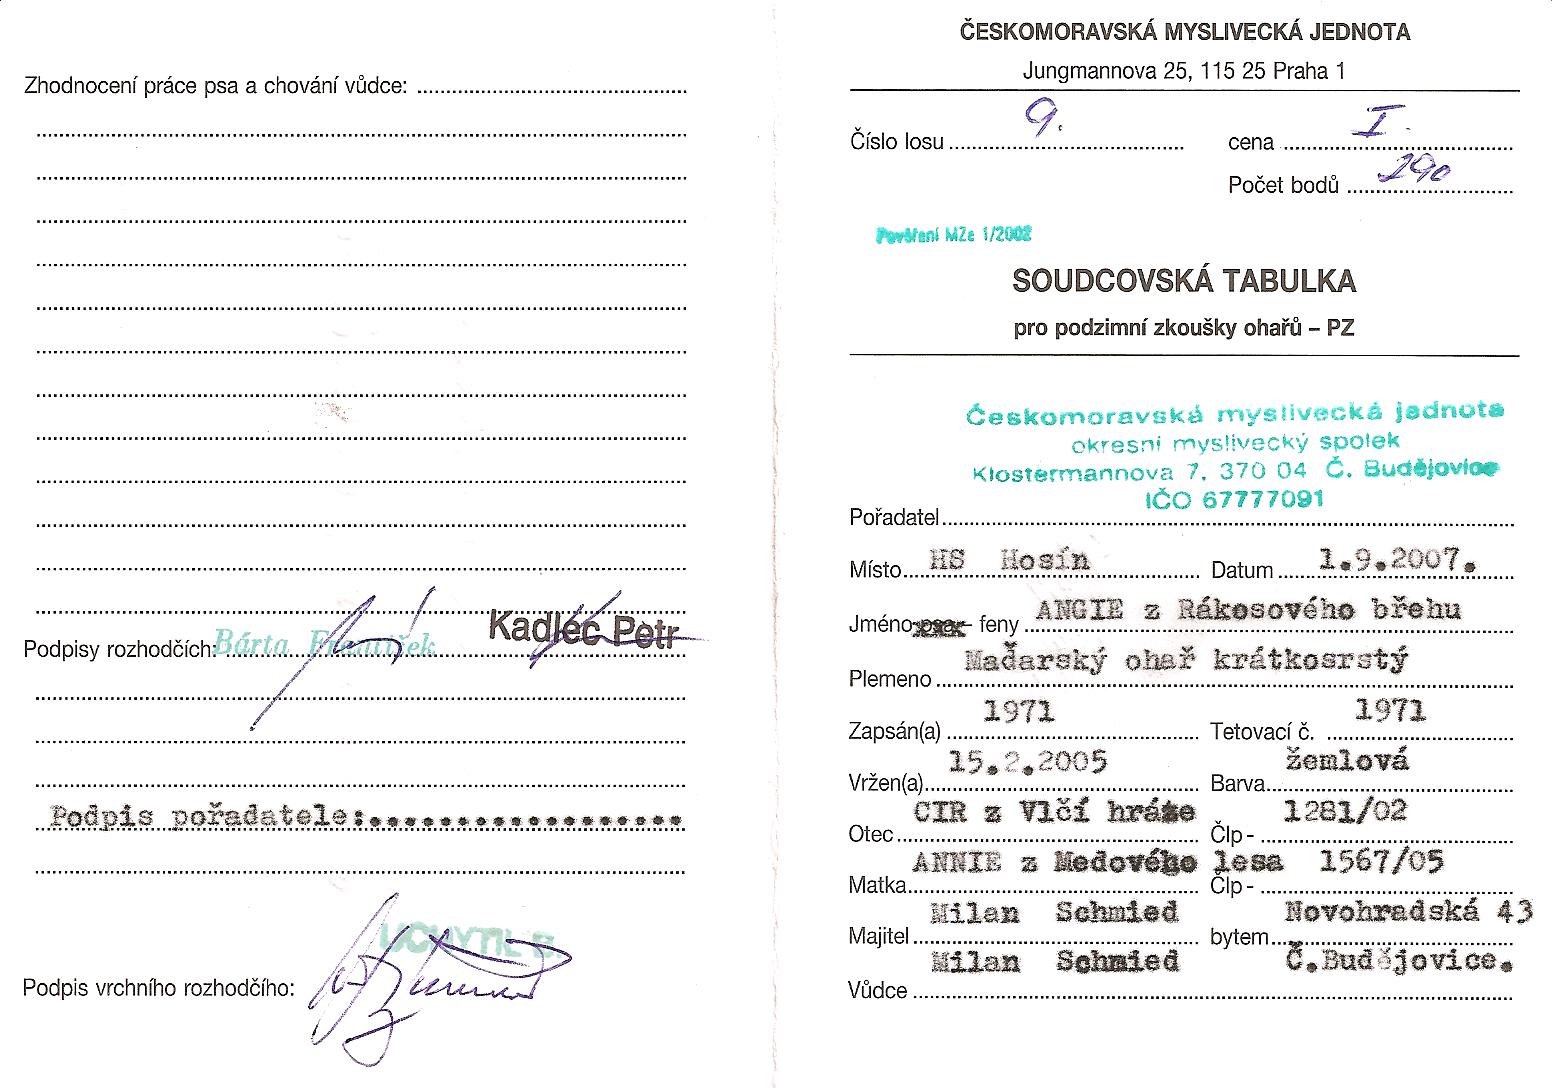 Zhodnocení práce psa a chování vůdce:
Podpisy rozhodčích: Bárta František Kadlec Petr
Podpis pořadatele:
UCHYTIL B.
Podpis vrchního rozhodčího:
ČESKOMORAVSKÁ MYSLIVECKÁ JEDNOTA
Jungmannova 25, 115 25 Praha 1
Číslo losu 9. cena I.
Počet bodů 290
Pověření MZe 1/2002
SOUDCOVSKÁ TABULKA
pro podzimní zkoušky ohařů – PZ
Českomoravská myslivecká jednota
okresní myslivecký spolek
Klostermannova 7, 370 04 Č. Budějovice
IČO 67777091
Pořadatel
Místo HS Hosín Datum 1.9.2007.
Jméno psa - feny ANGIE z Rákosového břehu
Plemeno Maďarský ohař krátkosrstý
Zapsán(a) 1971 Tetovací č. 1971
Vržen(a) 15.2.2005 Barva žemlová
Otec CIR z Vlčí hráze Člp - 1281/02
Matka ANNIE z Medového lesa Člp - 1567/05
Majitel Milan Schmied bytem Novohradská 43
Vůdce Milan Schmied Č.Budějovice.